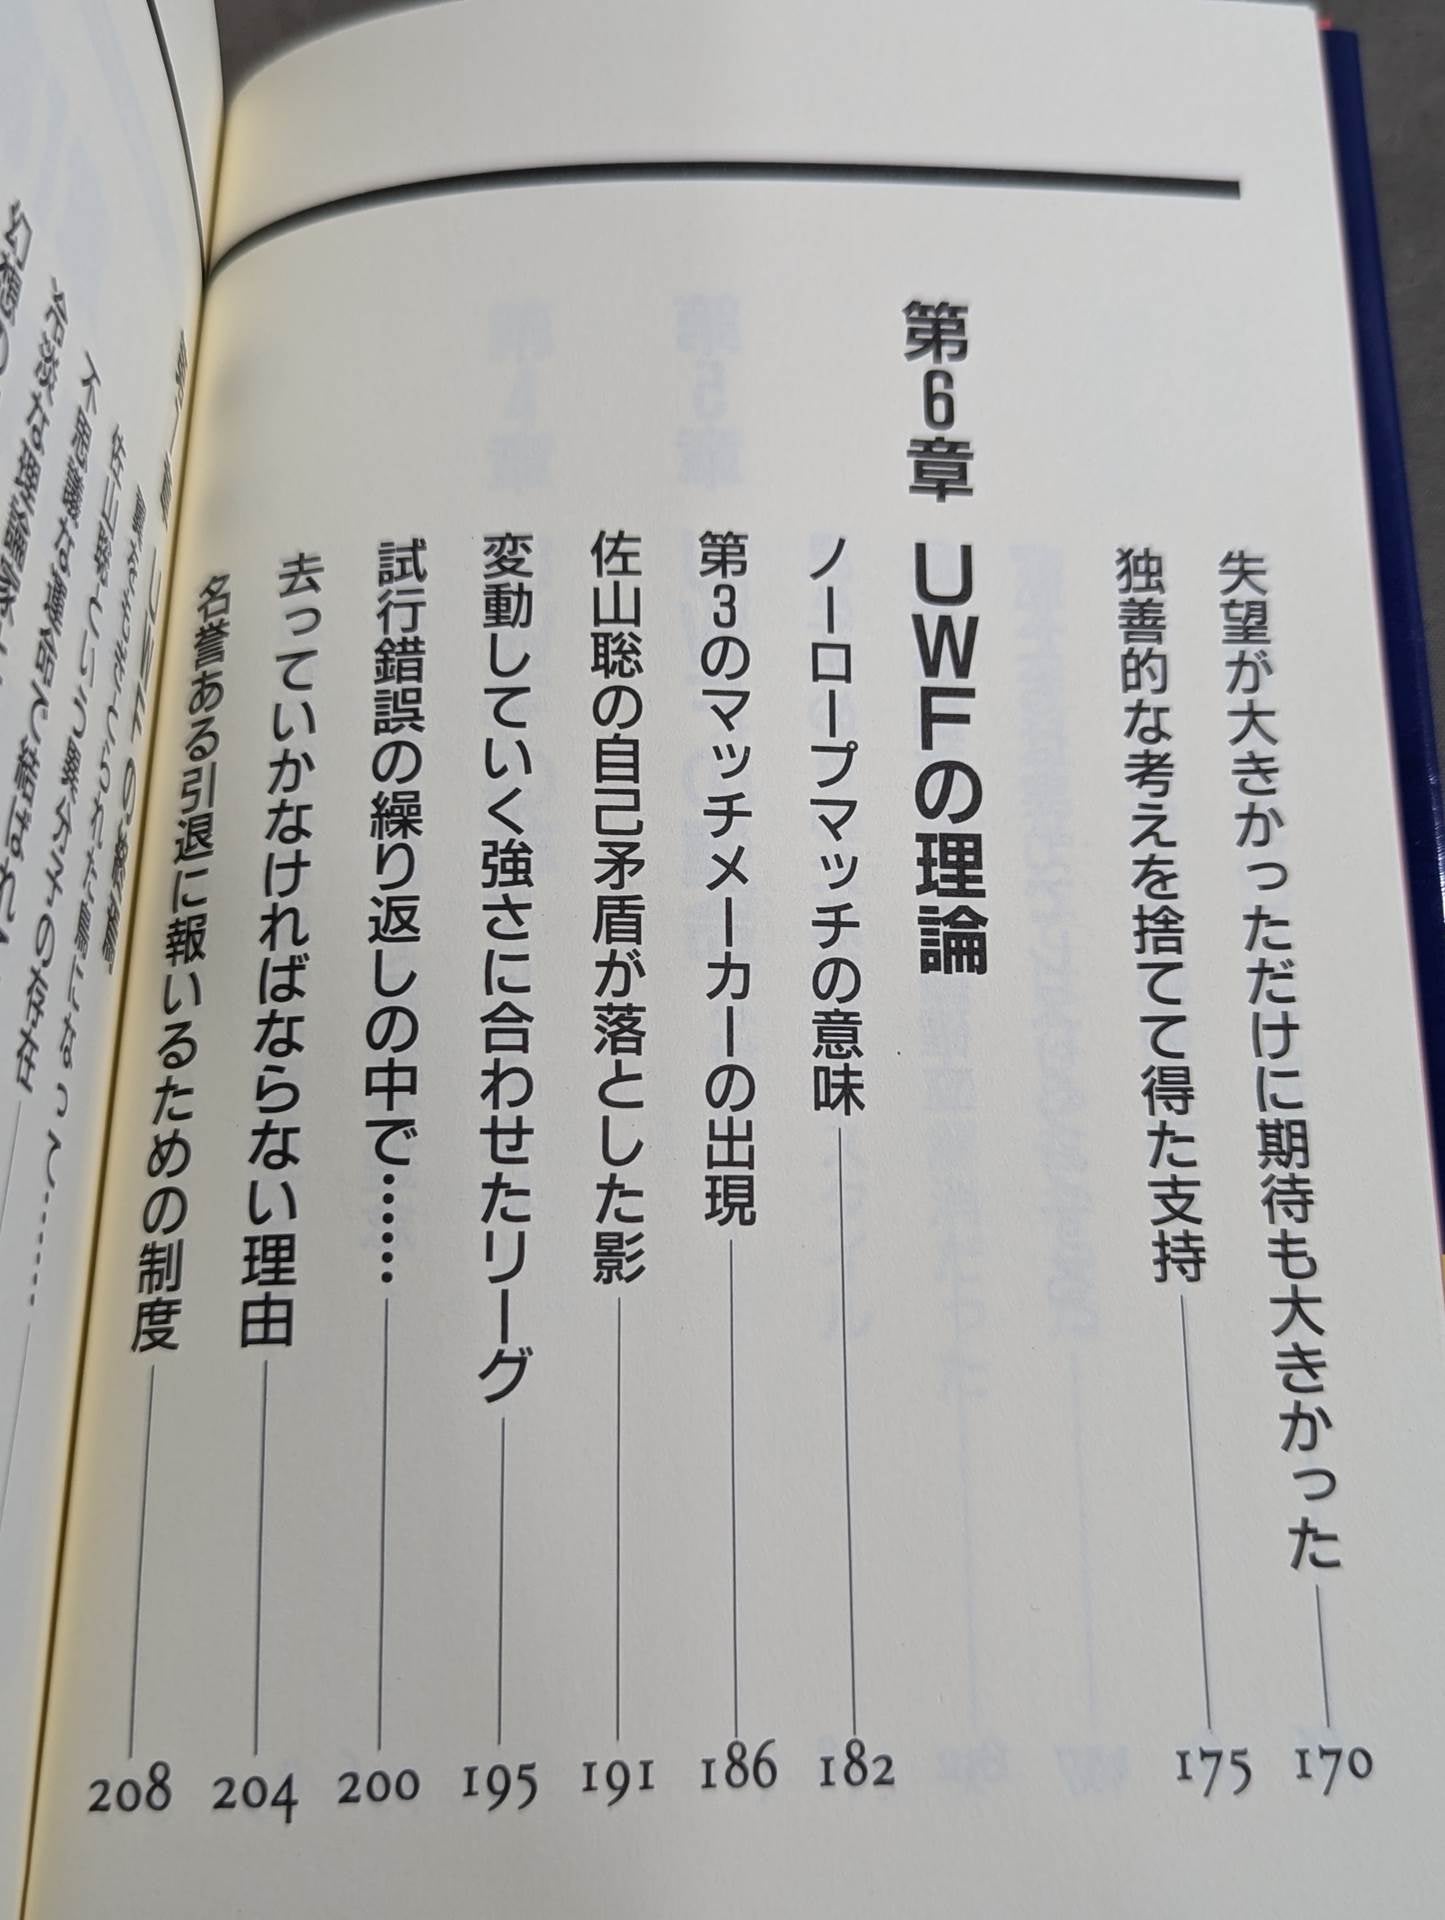 失望が大きかっただけに期待も大きかった 170
独善的な考えを捨てて得た支持 175
第6章 UWFの理論
ノーロープマッチの意味 182
第3のマッチメーカーの出現 186
佐山聡の自己矛盾が落とした影 191
変動していく強さに合わせたリーグ 195
試行錯誤の繰り返しの中で…… 200
去っていかなければならない理由 204
名誉ある引退に報いるための制度 208